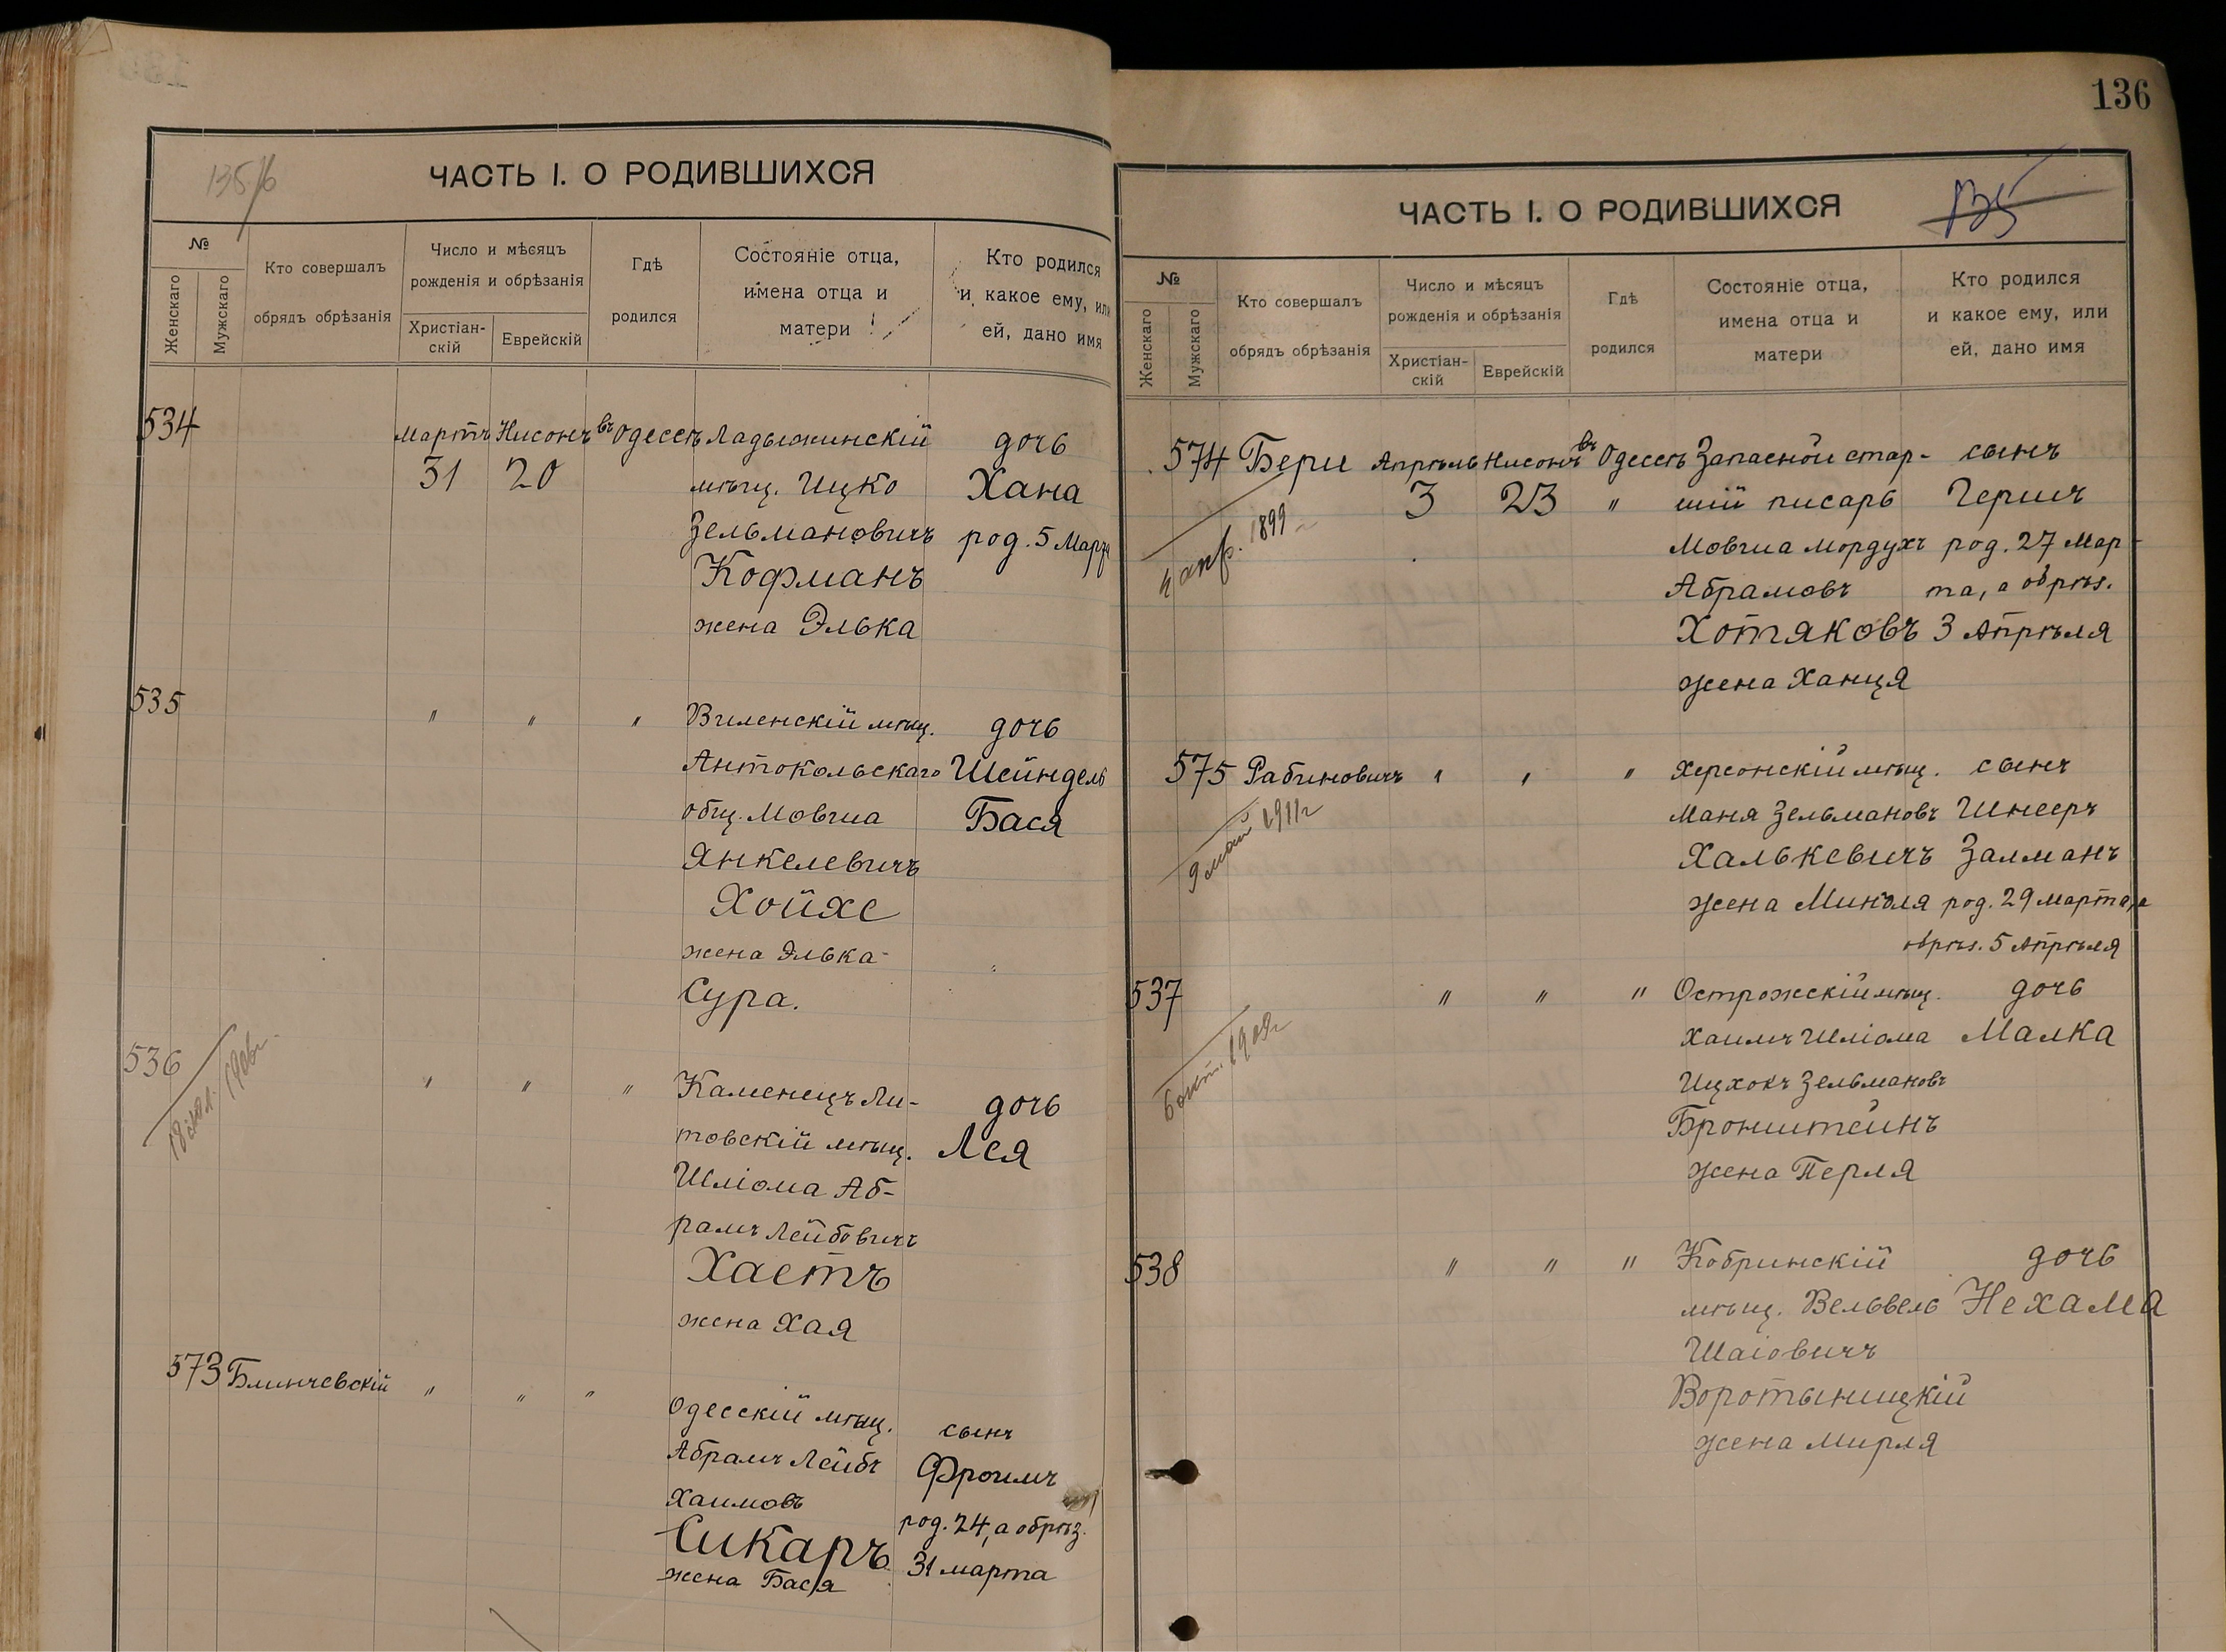 135/6
ЧАСТЬ I. О РОДИВШИХСЯ
№
Женскаго
Мужскаго
Кто совершалъ
обрядъ обрѣзанія
Число и мѣсяцъ
рожденія и обрѣзанія
Христіан-
скій
Еврейскій
Гдѣ
родился
Состояніе отца,
имена отца и
матери
Кто родился
и какое ему, или
ей, дано имя
534 Мартъ Нисонъ въ Одессѣ Ладыжинскій дочь
31 20 мѣщ. Ицко Хана
Зельмановичъ род. 5 Марта
Кофманъ
жена Элька
535 " " " Виленскій мѣщ. дочь
Антокольскаго Шейндель
общ. Мовша Бася
Янкелевичъ
Хойхе
жена Элька-
Сура.
536 " " " Каменецъ Ли- дочь
товскій мѣщ. Лея
Шліома Аб-
рамъ Лейбовичъ
Хаетъ
жена Хая
573 Блинчевскій " " " Одесскій мѣщ. сынъ
Абрамъ Лейбъ Фроимъ
Хаимовъ род. 24, а обрѣз.
Сикаръ 31 марта
жена Бася
136
ЧАСТЬ I. О РОДИВШИХСЯ
135
№
Женскаго
Мужскаго
Кто совершалъ
обрядъ обрѣзанія
Число и мѣсяцъ
рожденія и обрѣзанія
Христіан-
скій
Еврейскій
Гдѣ
родился
Состояніе отца,
имена отца и
матери
Кто родился
и какое ему, или
ей, дано имя
574 Бери Апрѣль Нисонъ въ Одессѣ Запасной стар- сынъ
3 23 " шій писарь Гершъ
1899 Мовша Мордухъ род. 27 Мар-
Абрамовъ та, а обрѣз.
Хотяковъ 3 Апрѣля
жена Ханця
575 Рабиновичъ " " " Херсонскій мѣщ. сынъ
1911г Маня Зельмановъ Шнееръ
Халькевичъ Залманъ
жена род. 29 марта, а
обрѣз. 5 Апрѣля
537 " " " Острожскій мѣщ. дочь
Хаимъ Шліома Малка
Ицхокъ Зельмановъ
Бронштейнъ
жена Перля
538 " " " Кобринскій дочь
мѣщ. Вельвель Нехама
Шаіовичъ
Воротыницкій
жена Мирля